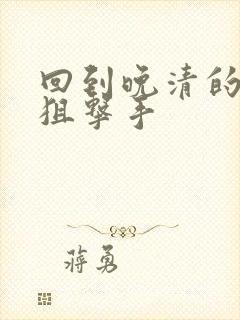 回到晚清的
狙撃手
蒋勇